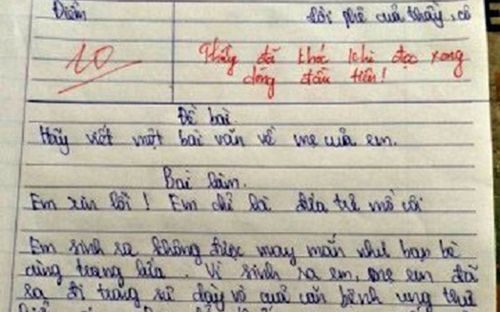 Điểm
lời phê của thầy, cô
10
Thầy đã khóc khi đọc xong
dòng đầu tiên!
Đề bài
Hãy viết một bài văn về mẹ của em.
Bài làm.
Em xin lỗi! Em chỉ là đứa trẻ mồ côi
Em sinh ra không được may mắn như bạn bè
cùng trang lứa. Vì sinh ra em, mẹ em đã
ra đi trong sự dày vò của căn bệnh ung thư